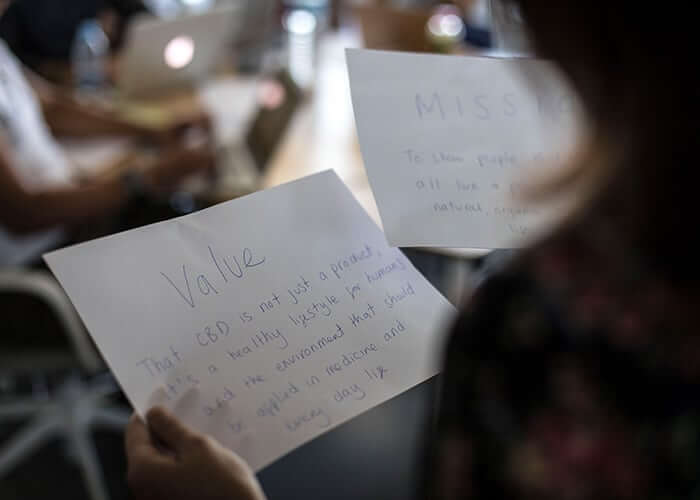 Value
That CBD is not just a product,
it's a healthy lifestyle for humans
and the environment that should
be applied in medicine and
every day life
MISS
To show people
all live a
natural, organic
life